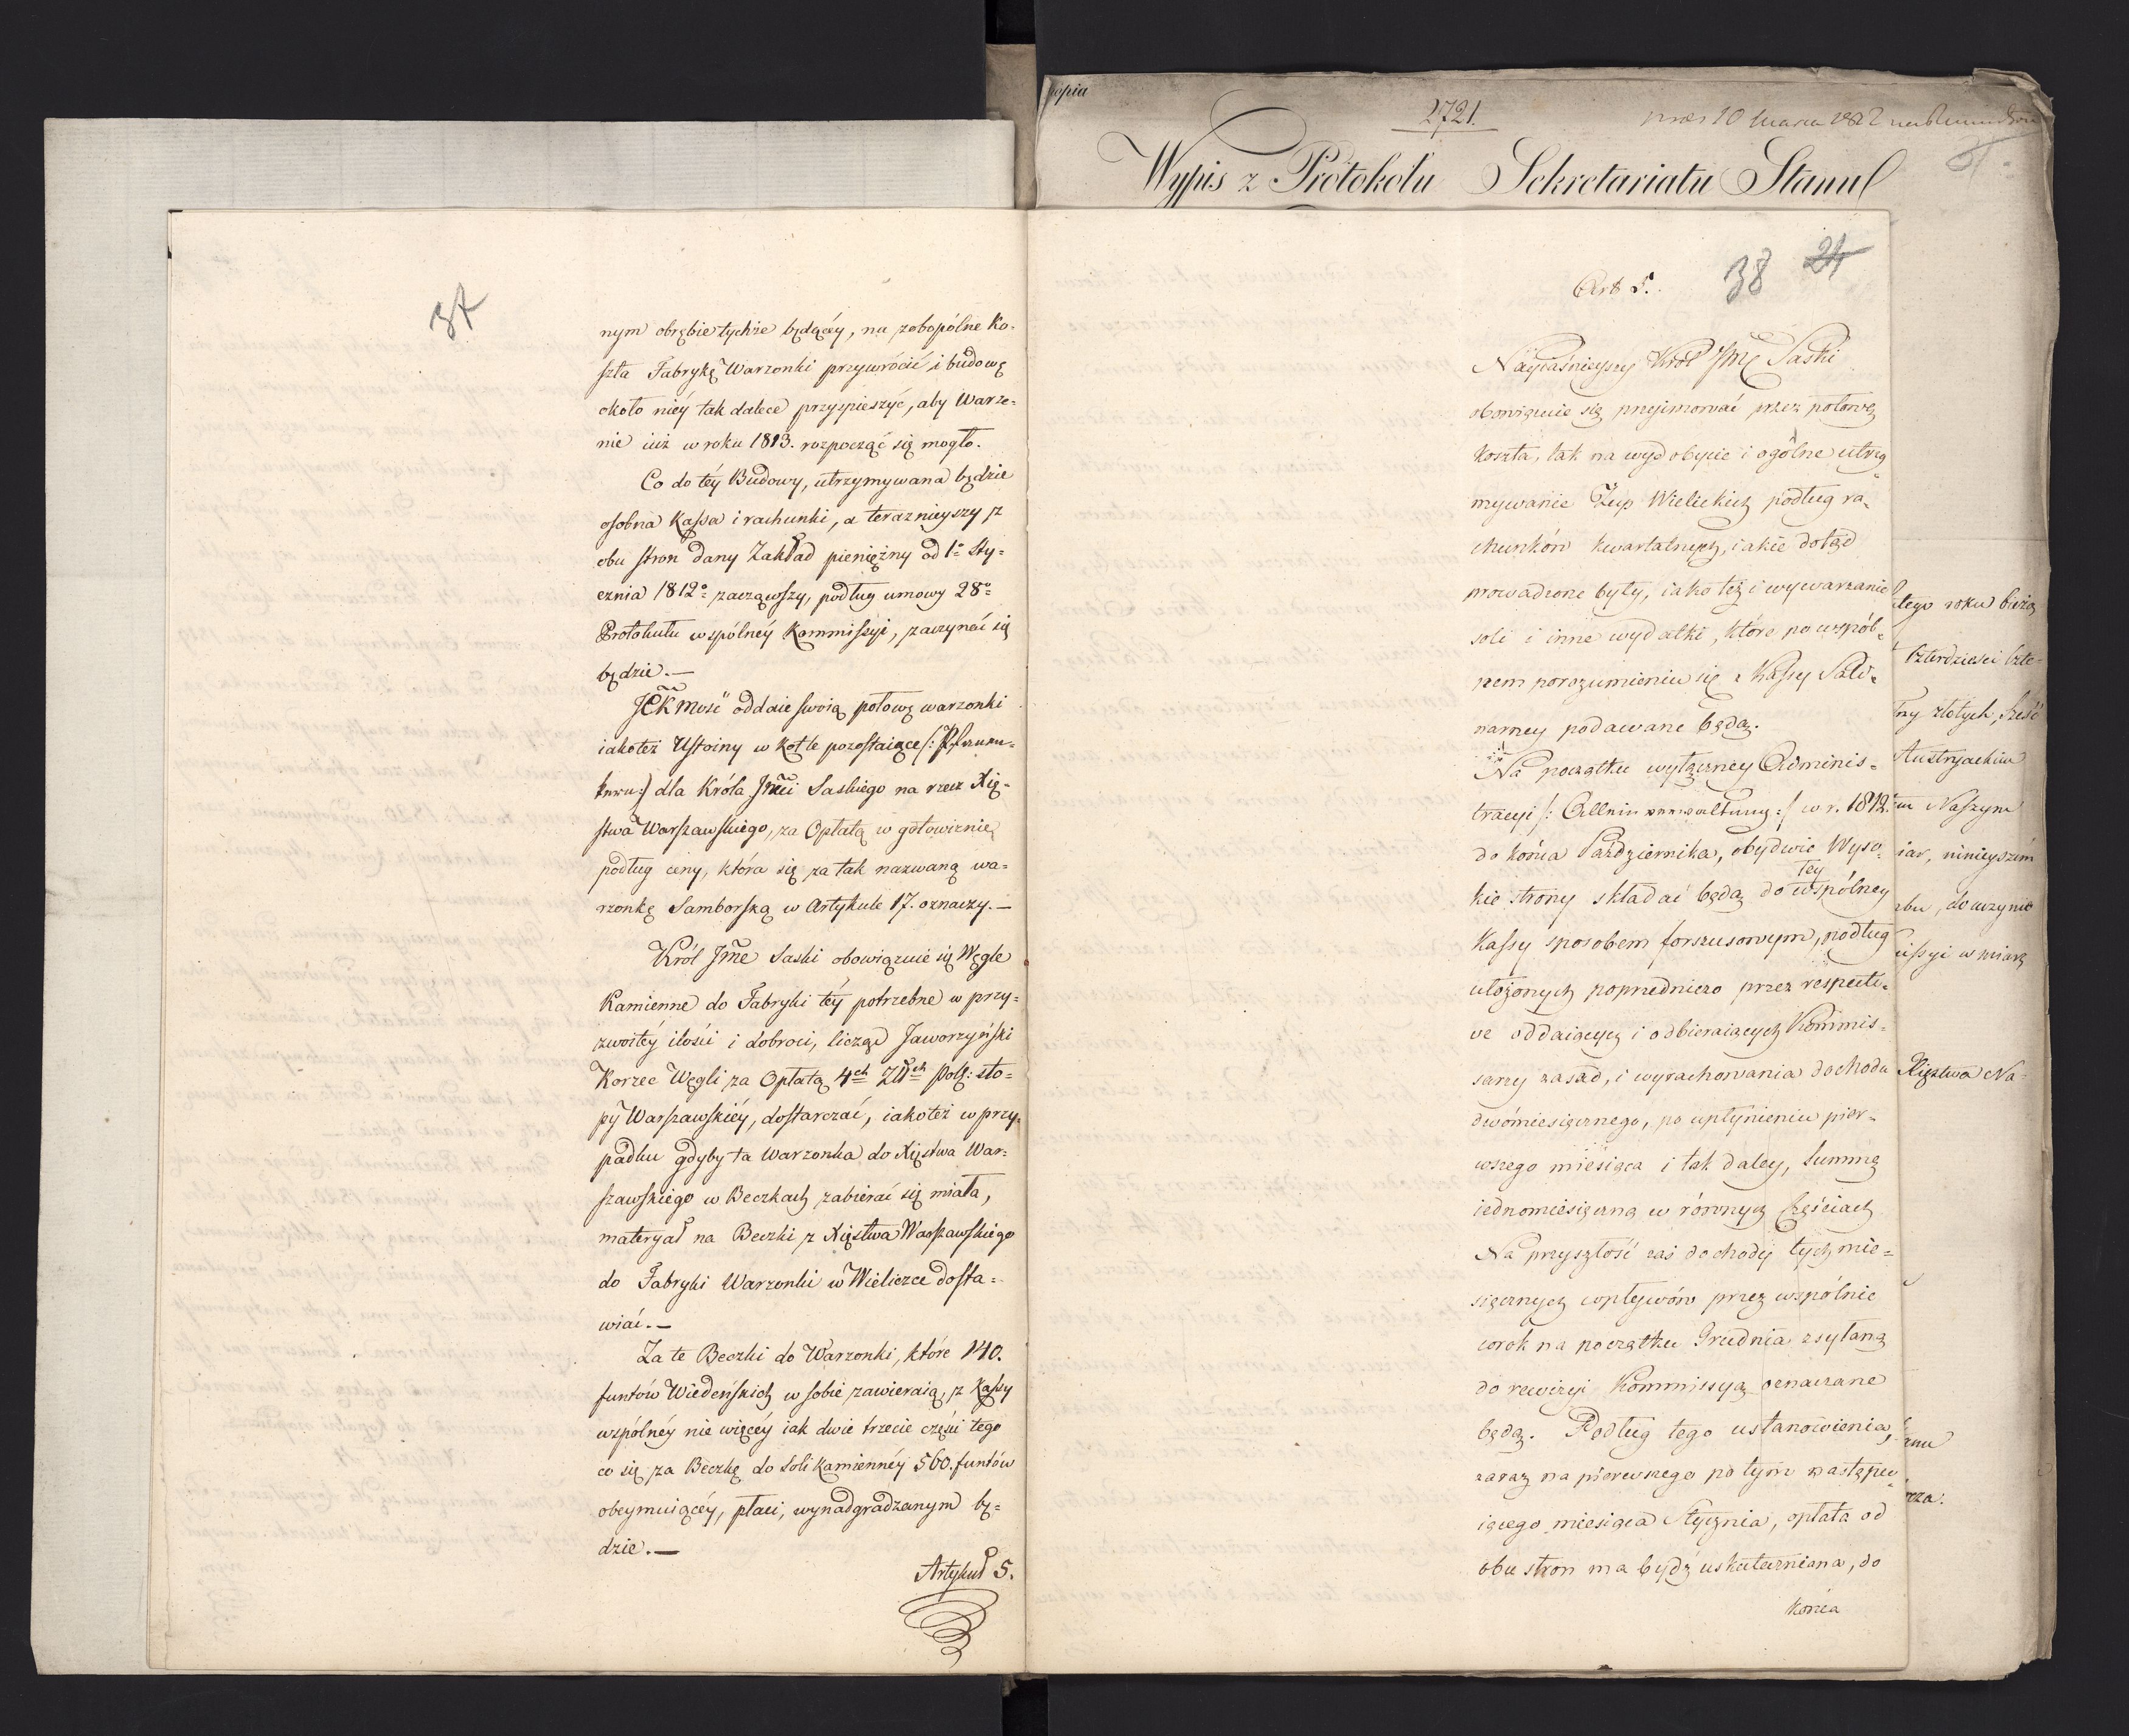 37
nym obrębie tychże będącéy, na zobopólne Ko-
szta Fabrykę Warzonki przywrócić, i budowę
około niéy tak dalece przyspieszyć, aby Warze-
nie iuż w roku 1813. rozpocząć się mogło.
Co do téy Budowy, utrzymywana będzie
osobna Kassa i rachunki, a teraznieyszy z
obu stron dany Zakład pieniężny od 1o Sty-
cznia 1812o zacząwszy, podług umowy 28o
Protokułu wspólnéy Kommissyi, zaczynać się
będzie.—
JCK Mość oddaie swoią połowę warzonki
iakoteż Ustoiny w Kotle pozostaiące /: Pfann-
kern :/ dla Króla Jmci Saskiego na rzecz Xię-
stwa Warszawskiego, za Opłatą w gotowiznie,
podług ceny, która się za tak nazwaną wa-
rzonkę Samborską w Artykule 17. oznaczy.—
Król Jmć Saski obowiązuie się Węgle
Kamienne do Fabryki téy potrzebne w przy-
zwoitéy ilości i dobroci, licząc Jaworzyński
Korzec Węgli za Opłatą 4ch Złłch Pols: sto-
py Warszawskiéy, dostarczać, iakoteż w przy-
padku gdyby ta Warzonka do Xięstwa War-
szawskiego w Beczkach zabierać się miała,
materyał na Beczki z Xięstwa Warszawskiego
do Fabryki Warzonki w Wieliczce dosta-
wiać.—
Za te Beczki do Warzonki, które 140.
funtów Wiedeńskich w sobie zawieraią, z Kassy
wspólnéy nie więcéy iak dwie trzecie części tego
co się za Beczkę do Soli Kamiennéy 560. funtów
obeymuiącéy, płaci, wynadgradzanym bę-
dzie.—
Artykuł 5.
Kopia
2721.
10 Marca 1812
Wypis z Protokołu Sekretariatu Stanu
38 24
Art 5.
Nayiaśnieyszy Król Jmć Saski
obowiązuie się przyimować przez połowę
koszta, tak na wydobycie i ogólne utrzy-
mywanie Żup Wielickich podług ra-
chunków kwartalnych, iakie dotąd
prowadzone były, iako też i wywarzanie
soli i inne wydatki, które po wspól-
nem porozumieniu się z Kassy Sali-
narney podawane będą.
Na początku wyłączney Adminis-
tracyi /: Alleinverwaltung :/ w r. 1812.
do końca Października, obydwie Wyso-
kie strony składać będą do Tey wspólney
Kassy sposobem forszusowym, podług
ułożonych poprzedniczo przez respecti-
ve oddaiących i odbieraiących Kommis-
sarzy zasad, i wyrachowania dochodu
dwómiesięcznego, po upłynieniu pier-
wszego miesiąca i tak daley, summę
iednomiesięczną w równych Częściach
Na przyszłość zaś dochody tych mie-
sięcznych wpływów przez wspólnie
corok na początku Grudnia zsyłaną
do rewizyi Kommissyą oznaczane
będą. Podług tego ustanowienia,
zaraz na pierwszego po tym następu-
iącego miesiąca Stycznia, opłata od
obu stron ma bydź uskuteczniana, do
końca
tego roku bieżą
Czterdzieści Czte-
złotych, Sześć
Austryackim
Naszym
ninieyszém
do uczynie
w miarę
Xięstwa Na-